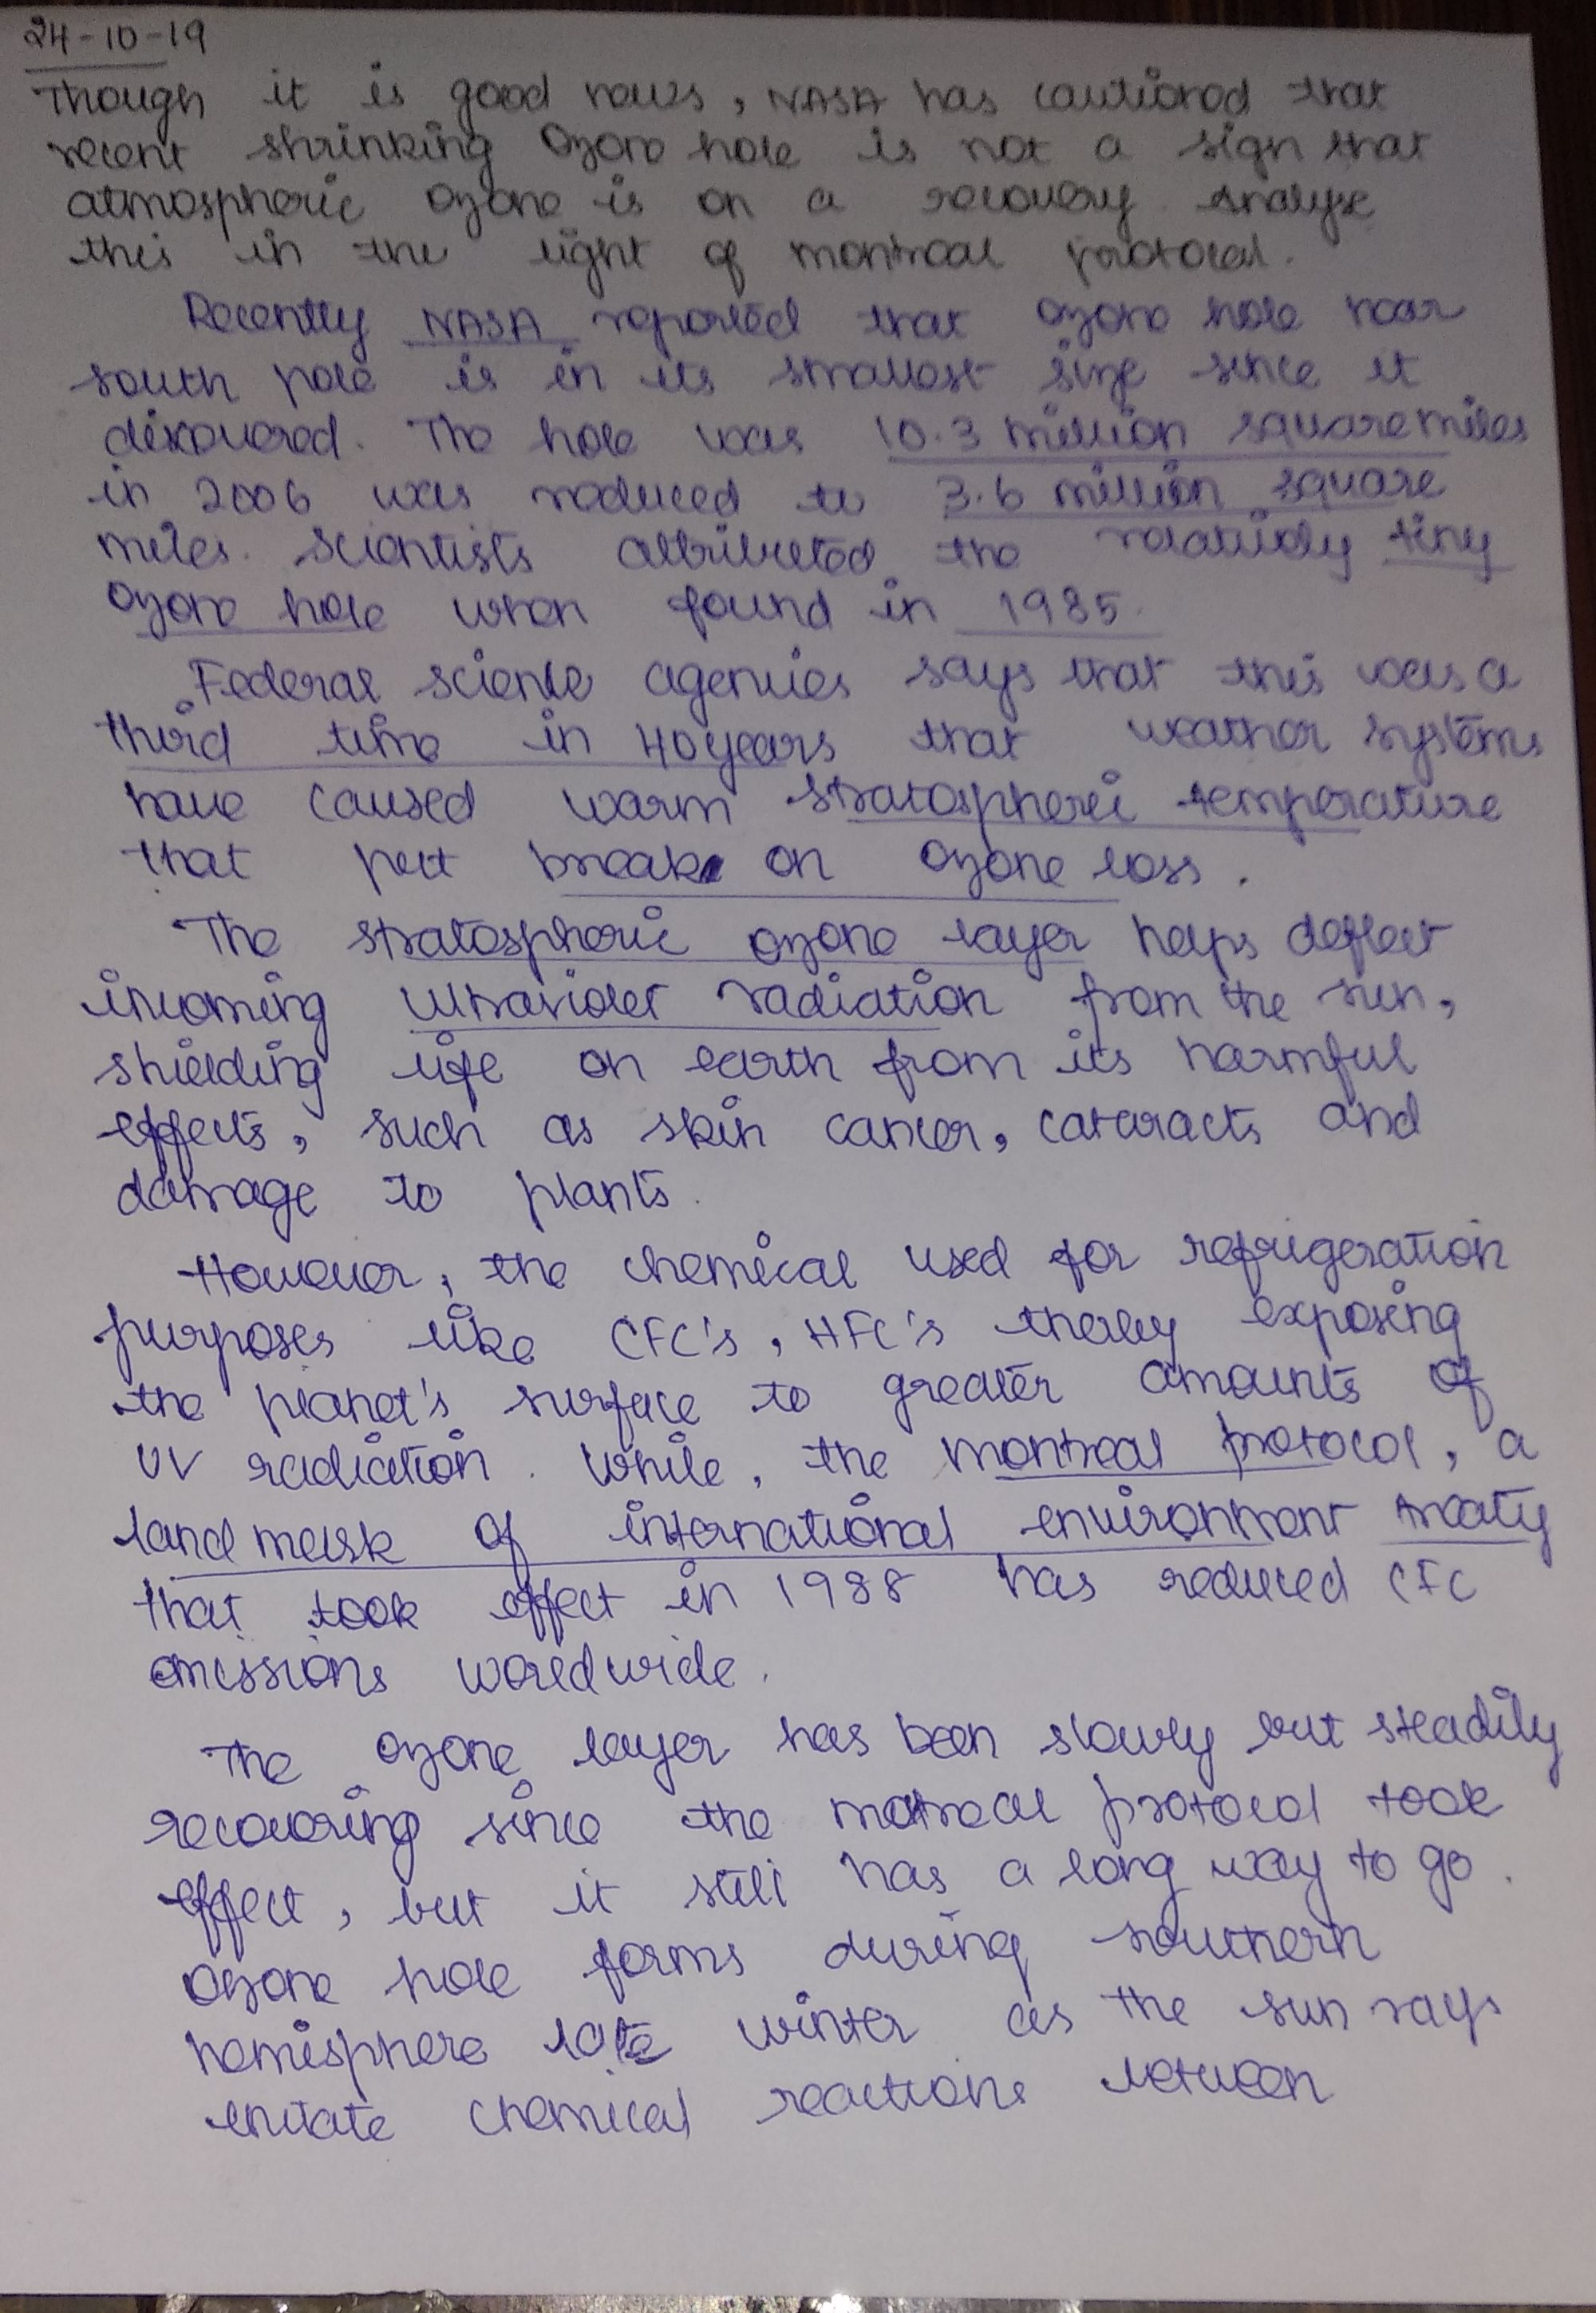 24-10-19
Though it is good news, NASA has cautioned that
recent shrinking Ozone hole is not a sign that
atmospheric ozone is on a recovery. Analyse
this in the light of montreal protocol.
Recently NASA reported that ozone hole near
south pole is in its smallest size since it
discovered. The hole was 10.3 million square miles
in 2006 was reduced to 3.6 million square
miles. Scientists attributed the relatively tiny
Ozone hole when found in 1985.
Federal science agencies says that this was a
third time in 40 years that weather systems
have caused warm stratospheric temperature
that put break on ozone loss.
The stratospheric ozone layer helps deflect
incoming ultraviolet radiation from the sun,
shielding life on earth from its harmful
effects, such as skin cancer, cataracts and
damage to plants.
However, the chemical used for refrigeration
purposes like CFC's, HFC's thereby exposing
the planet's surface to greater amounts of
UV radiation. While, the montreal protocol, a
land mark of international environment treaty
that took effect in 1988 has reduced CFC
emissions worldwide.
The ozone layer has been slowly but steadily
recovering since the montreal protocol took
effect, but it still has a long way to go.
Ozone hole forms during southern
hemisphere late winter as the sun rays
initate chemical reactions between